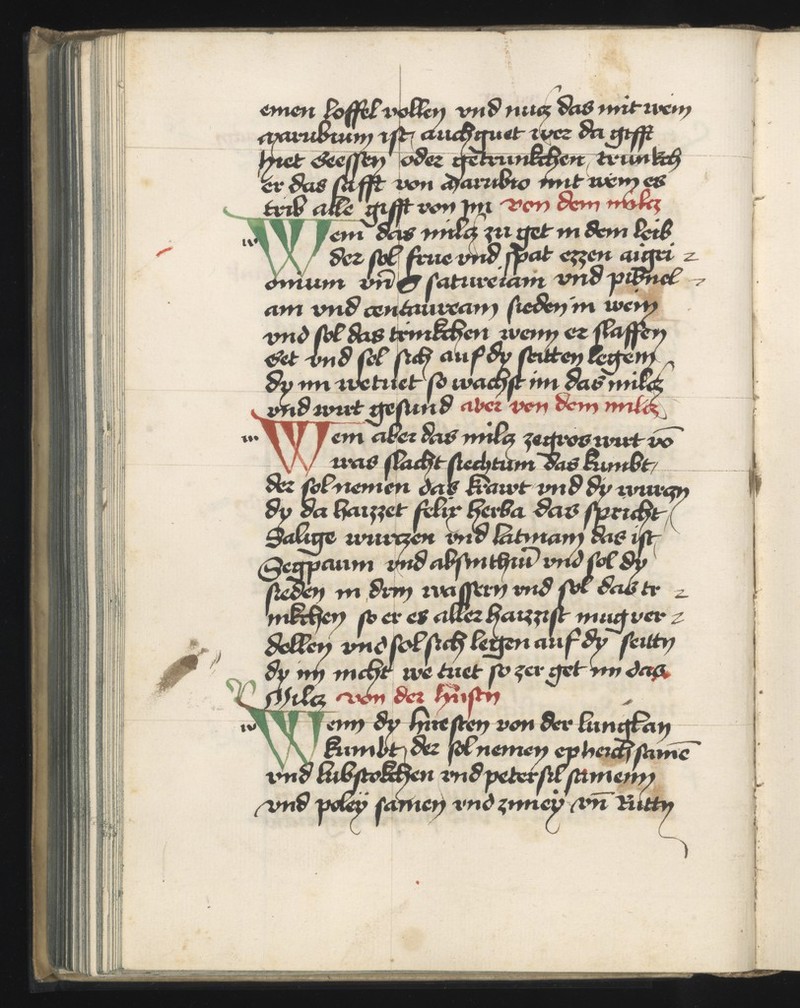 einen loffel vollen vnd nucz das mit wein
Marubium ist auch guet wer da gifft
hiet geessen oder getrunkchen trunkch
er das safft von Marubio mit wein es
trib alle gifft von im von dem milcz
Wem das milcz zu get in dem leib
der sol frue vnd spat ezzen aigri
monium vn̄ satureiam vnd pibnel
am vnd centauream sieden in wein
vnd sol das trinkchen wenn er slaffen
get vnd sol sich auf dy seitten legen
dy im we tuet so wachst im das milcz
vnd wirt gesund aber von dem milcz
Wem aber das milcz ze gros wirt vō
was slacht siechtum das kumbt
der sol nemen das krawt vnd dy wurczn
dy da haizzet felix herba das spricht
Salige wurczen vnd latinam das ist
Segpaum vnd absinthiū vnd sol dy
sieden in drin wassern vnd sol das tr
inkchen so er es aller haizzist mug ver
dollen vnd sol sich legen auf dy seittn
dy im nicht we tuet so zer get im das
Milcz von der huestn
Wenn dy huesten von der lungkan
kumbt der sol nemen epheich samē
vnd lubstokchen vnd petersil samenn
vnd poley samen vnd zimey vn̄ Rittn